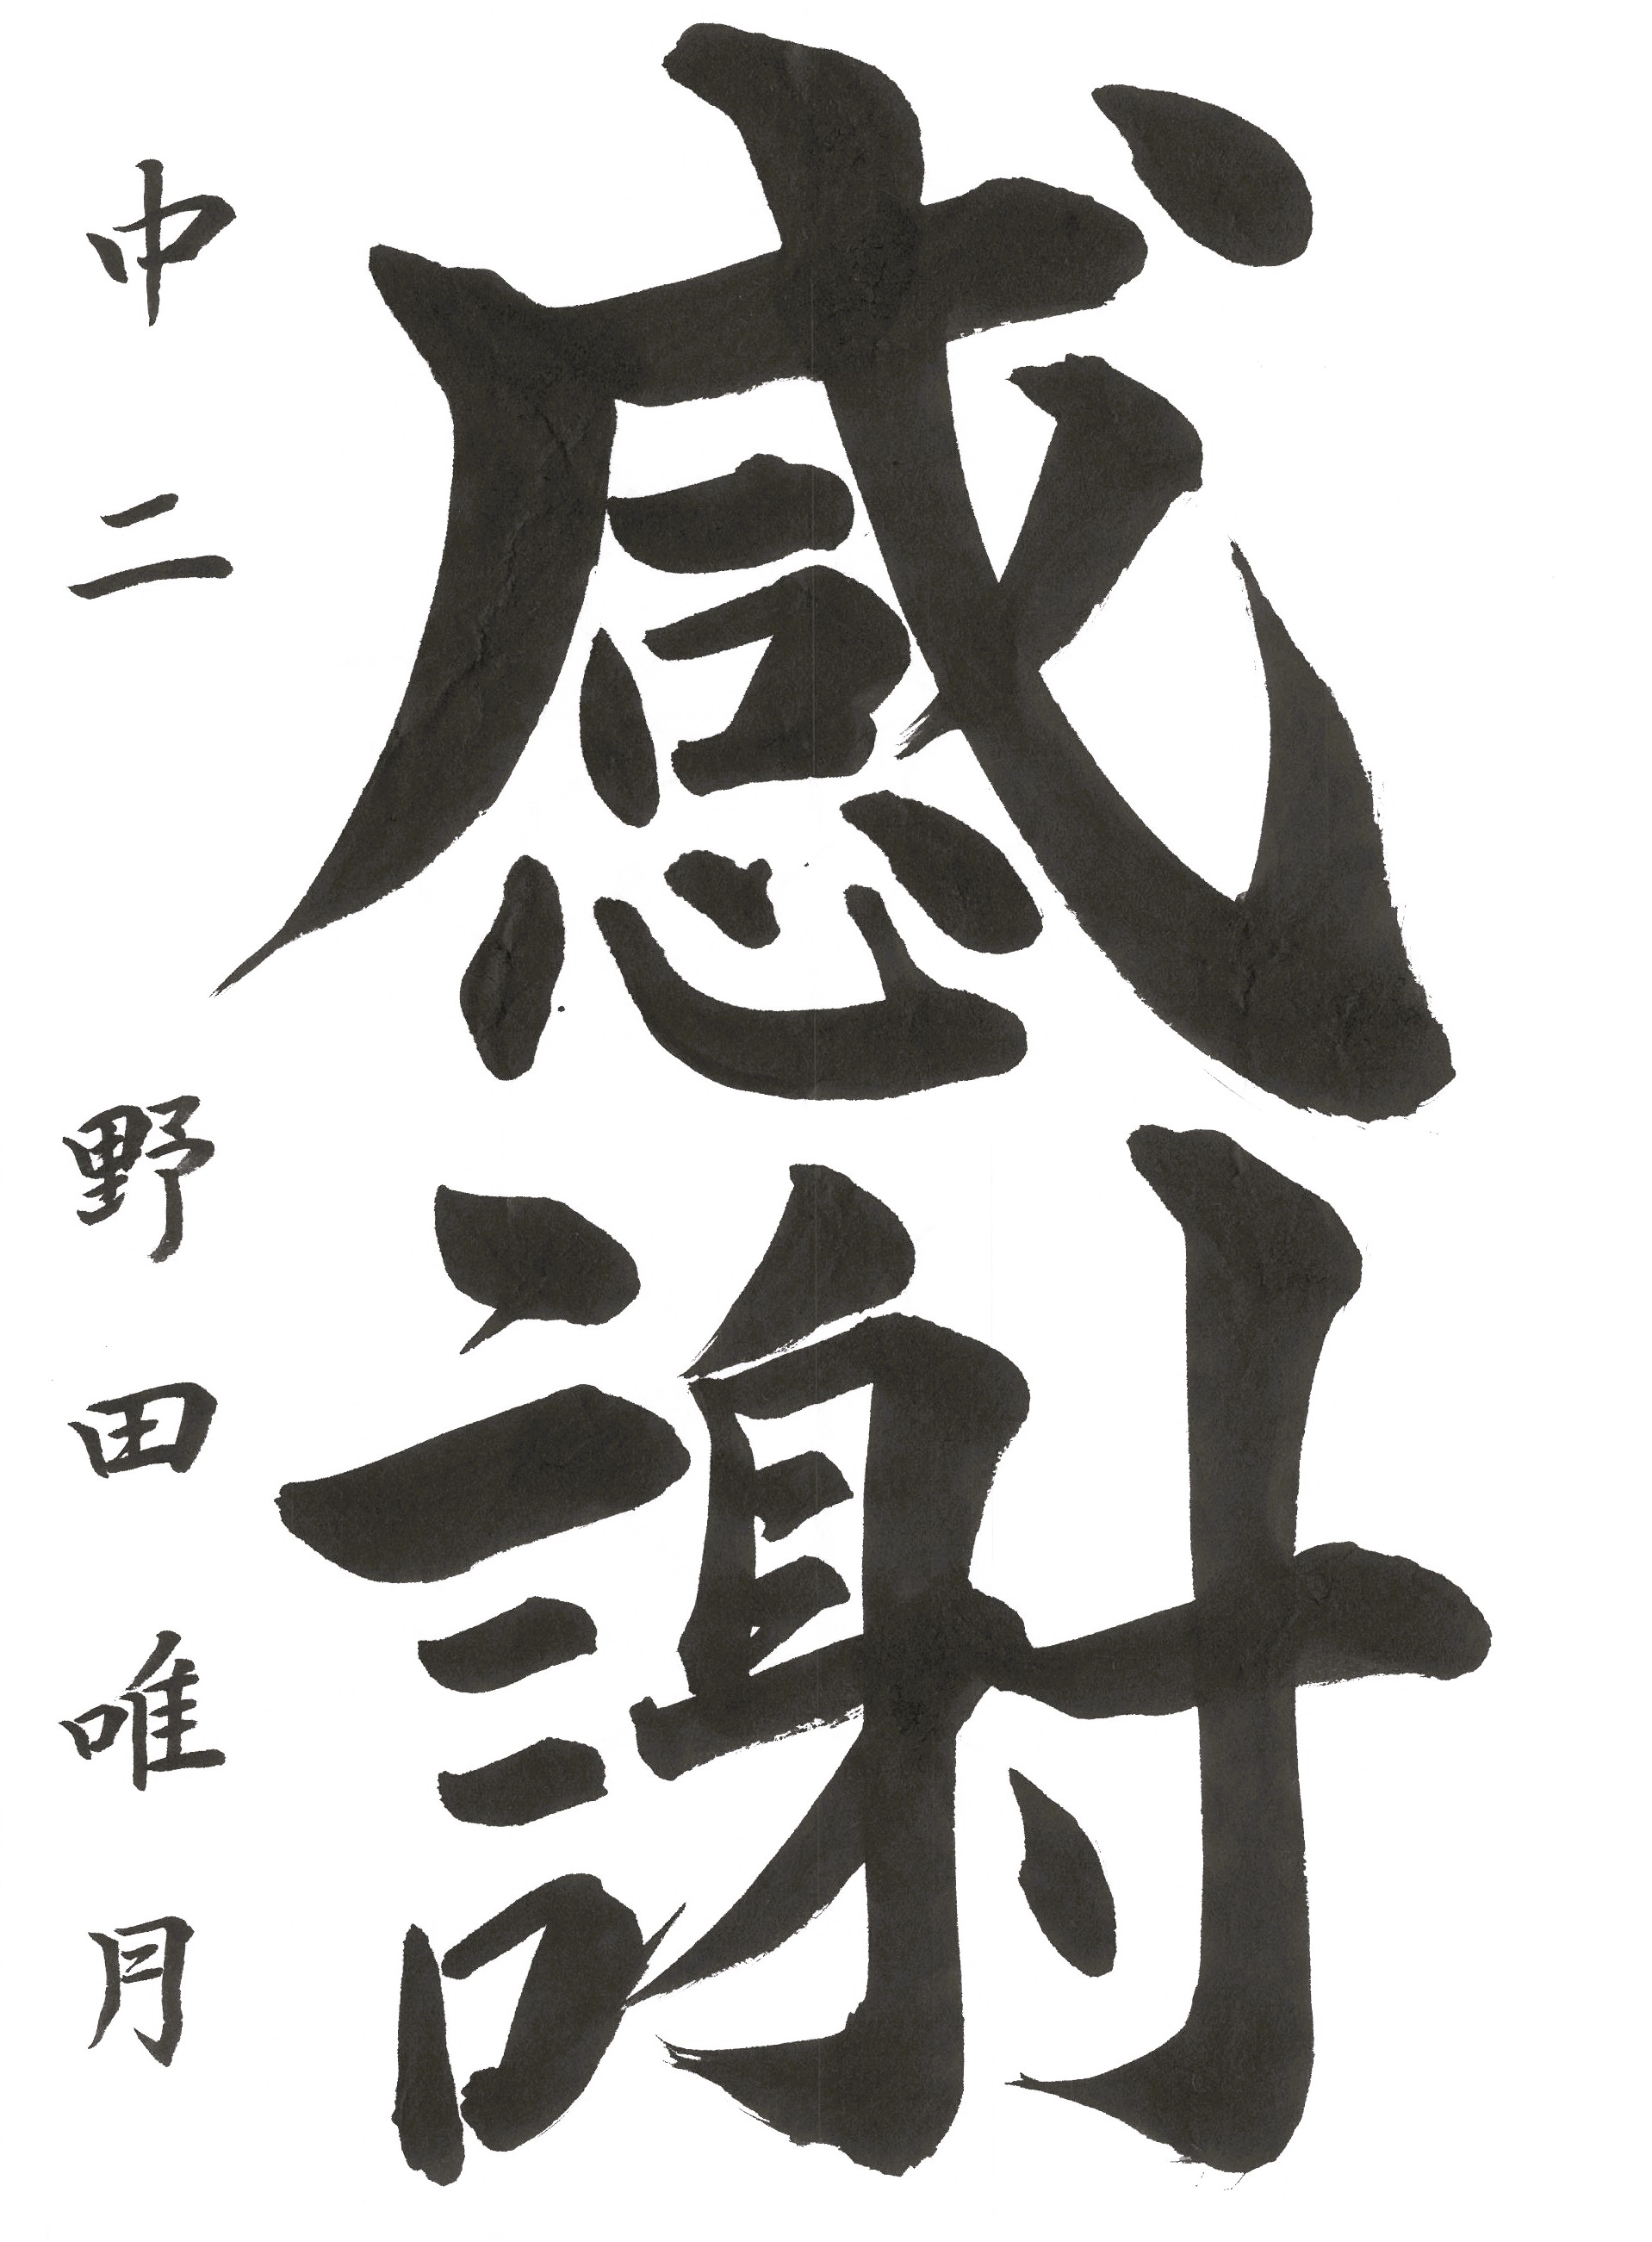 感謝
中二 野田唯月